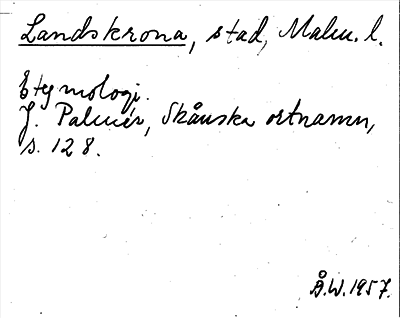 Landskrona, stad, Malm. l.
Etymologi.
J. Palmér, Skånska ortnamn,
s. 128.
Å.W. 1957.